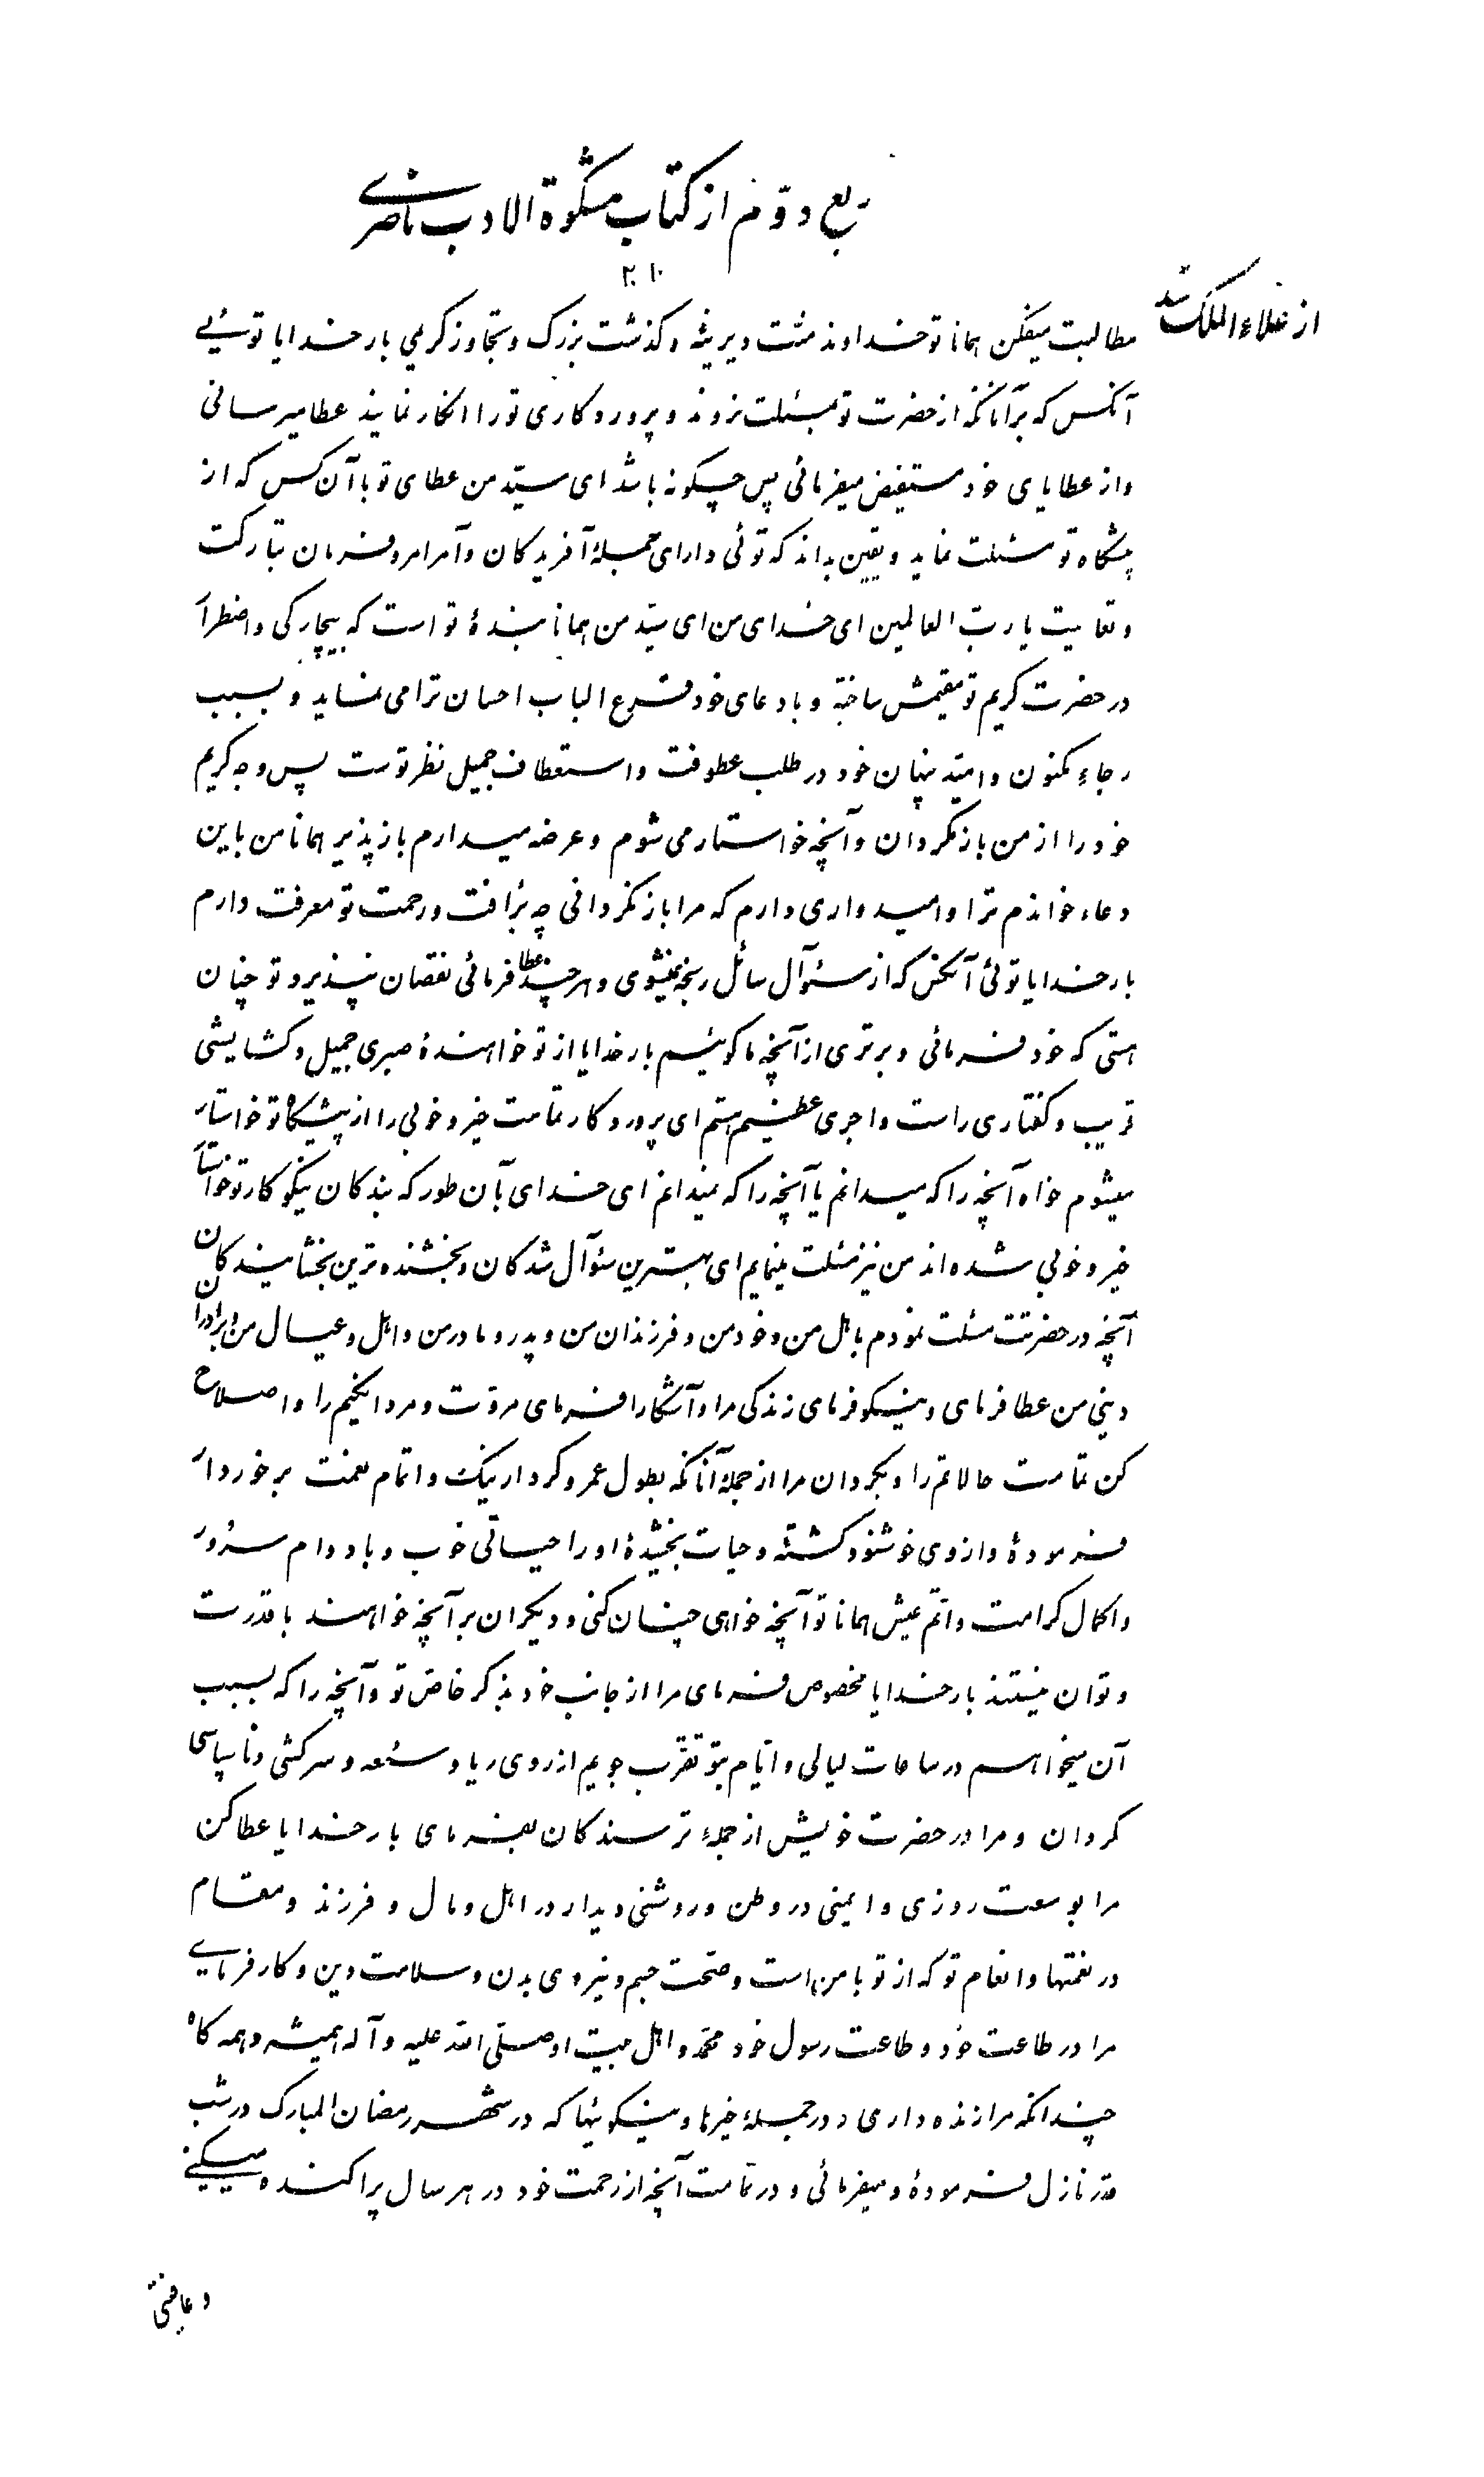 ربع دوّم از کتاب مشکوة الادب ناصری
۲۱۰
مطالبت میفکن همانا تو خداوند منّت دیرینه و گذشت بزرگ و تجاوز کریمی بار خدایا توئی
آنکس که بر آنانکه از حضرت تو بمسئلت نروند و پروردگاری تو را انکار نمایند عطا میرسانی
و از عطایای خود مستفیض میفرمائی پس چگونه باشد ای سیّد من عطای تو با آن کس که از
پیشگاه تو مسئلت نماید و یقین بداند که توئی دارای جملهٔ آفریدگان و آمر امر و فرمان تبارکت
و تعالیت یا ربّ العالمین ای خدای من ای سیّد من همانا بندهٔ تو است که بیچارگی و اضطرار
در حضرت کریم تو مقیمش ساخته و با دعای خود قرع الباب احسان ترا می نماید و بسبب
رجاءِ مکنون و امید پنهان خود در طلب عطوفت و استعطاف جمیل نظر توست پس وجه کریم
خود را از من باز مگردان و آنچه خواستار می شوم و عرضه میدارم باز پذیر همانا من باین
دعاء خواندم ترا و امیدواری دارم که مرا باز نگردانی چه برأفت و رحمت تو معرفت دارم
بار خدایا توئی آنکس که از سئوآل سائل رنجه نمیشوی و هر چند عطا فرمائی نقصان نپذیرد و تو چنان
هستی که خود فرمائی و برتری از آنچه ما گوئیم بار خدایا از تو خواهندهٔ صبری جمیل و گشایشی
قریب و گفتاری راست و اجری عظیم هستم ای پروردگار تمامت خیر و خوبی را از پیشگاه تو خواستار
میشوم خواه آنچه را که میدانم یا آنچه را که نمیدانم ای خدای بآن طور که بندگان نیکو کار تو خواستار
خیر و خوبی شده اند من نیز مسئلت مینمایم ای بهترین سئوآل شدگان و بخشنده ترین بخشایندگان
آنچه در حضرتت مسئلت نمودم باهل من و خود من و فرزندان من و پدر و مادر من و اهل و عیال من و برادران
دینی من عطا فرمای و نیکو فرمای زندگی مرا و آشکارا فرمای مروّت و مردانگیم را و اصلاح
کن تمامت حالاتم را و بگردان مرا از جملهٔ آنانکه بطول عمر و کردار نیک و اتمام نعمت برخوردار
فرمودهٔ و از وی خوشنود گشته و حیات بخشیدهٔ او را حیاتی خوب و با دوام سرور
و اکمال کرامت و اتمّ عیش همانا تو آنچه خواهی چنان کنی و دیگران بر آنچه خواهند با قدرت
و توان نیستند بار خدایا مخصوص فرمای مرا از جانب خود بذکر خاصّ تو و آنچه را که بسبب
آن میخواهم در ساعات لیالی و ایّام بتو تقرّب جویم از روی ریا و سمعه و سرکشی و ناسپاسی
گردان و مرا در حضرت خویش از جملهٔ ترسندگان بفرمای بار خدایا عطا کن
مرا بوسعت روزی و ایمنی در وطن و روشنی دیدار در اهل و مال و فرزند و مقام
در نعمتها و انعام تو که از تو با من است و صحّت جسم و نیروی بدن و سلامت دین و کار فرمای
مرا در طاعت خود و طاعت رسول خود محمّد و اهل بیت او صلّی الله علیه و آله همیشه و همه گاه
چندانکه مرا زنده داری و در جملهٔ خیرها و نیکوئیها که در شهر رمضان المبارک در شب
قدر نازل فرمودهٔ و میفرمائی و در تمامت آنچه از رحمت خود در هر سال پراکنده میکنی
و عافیتی